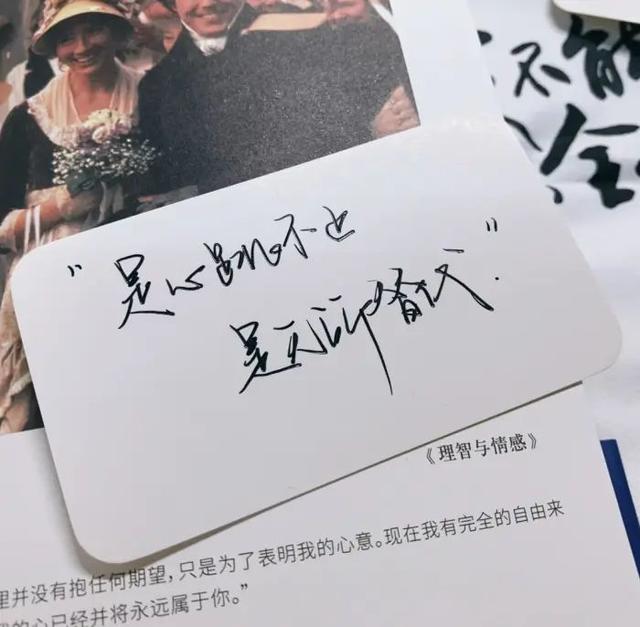 不能
全
“是心跳不止
是无可替代”
《理智与情感》
里并没有抱任何期望，只是为了表明我的心意。现在我有完全的自由来
的心已经并将永远属于你。”